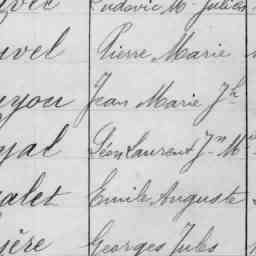 Ludovic M. Julien
uvel Pierre Marie
uyou Jean Marie Jh
yal Léon Laurent Jn M
alet Emile Auguste
ière Georges Jules